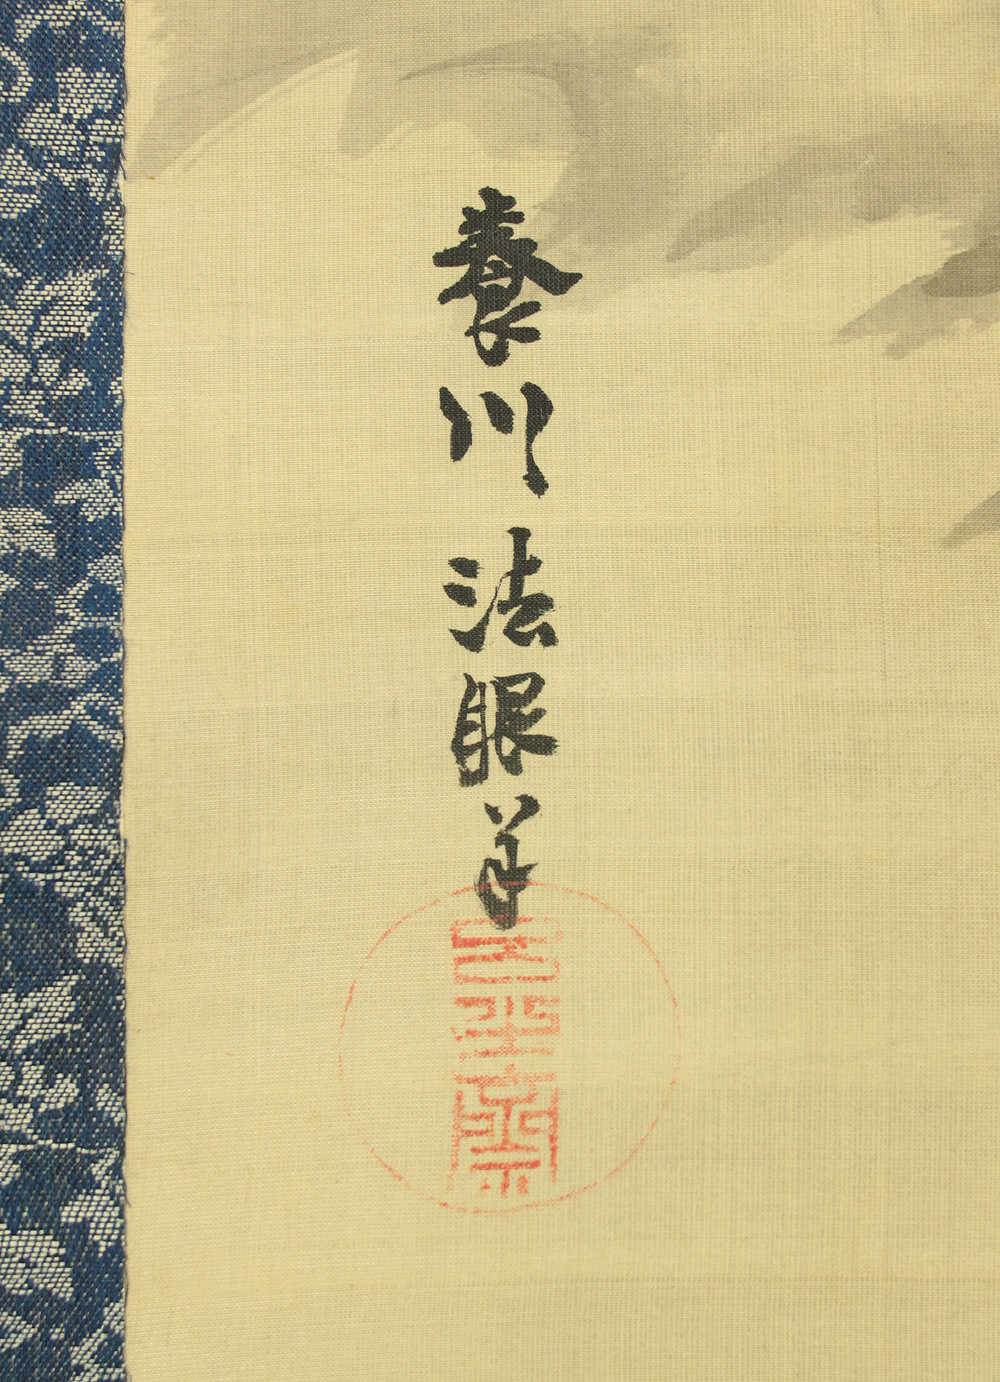 養川法眼筆